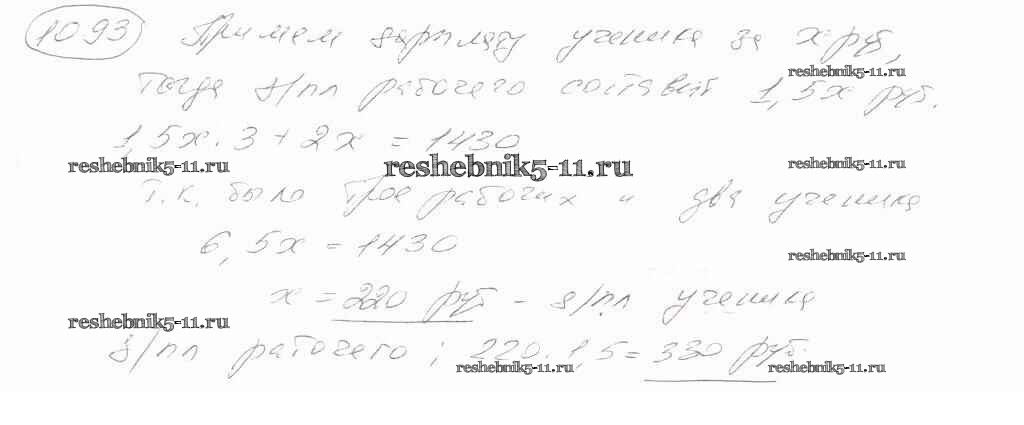 1093 Примем зарплату ученика за x руб,
reshebnik5-11.ru
тогда з/пл рабочего составит 1,5x руб.
1,5x · 3 + 2x = 1430
reshebnik5-11.ru reshebnik5-11.ru reshebnik5-11.ru
т.к. было трое рабочих и два ученика
6,5x = 1430
reshebnik5-11.ru
x = 220 руб - з/пл ученика
reshebnik5-11.ru
з/пл рабочего ; 220 · 1,5 = 330 руб.
reshebnik5-11.ru reshebnik5-11.ru